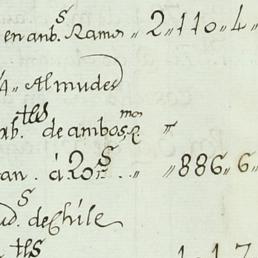 en anb.s Ramos ,, 2,,110,,4,,
4,, Almudes
tles de ambos Rmos ,,
an. á 20 s ,, ,,886,,6,,
ud.s de Chile
tles 1,,17